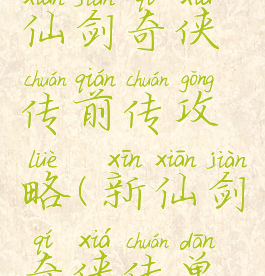 xiān jiàn qí xiá
仙剑奇侠
chuán qián chuán gōng
传前传攻
lüè xīn xiān jiàn
略(新仙剑
qí xiá chuán dān
奇侠传单